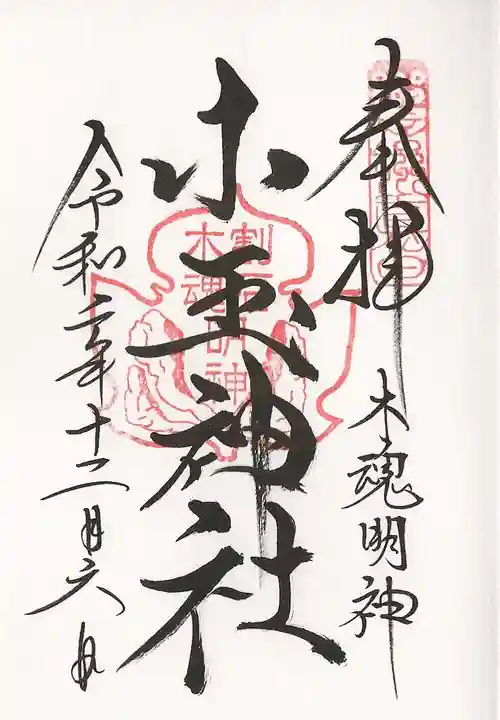 奉拝
木魂明神
木玉神社
割石
木魂明神
令和二年十二月六日